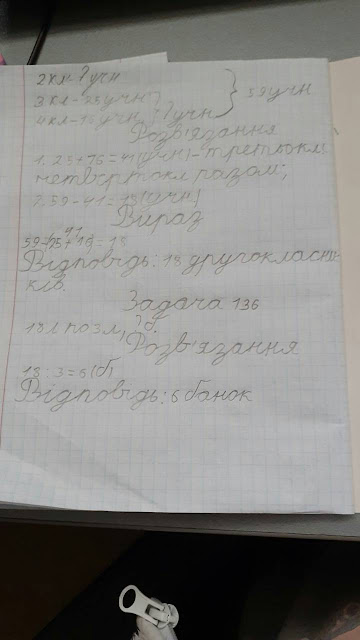 2 кл - ? учн
3 кл - 25 учн } 59 учн
4 кл - 16 учн } ? учн
Розв'язання
1. 25+16=41(учн) - третьокл
четвертокл разом;
2. 59-41=18(учн)
Вираз
59-(25+16)=18
Відповідь: 18 другокласни-
ків.
Задача 136
18 л по 3 л, ? б.
Розв'язання
18:3=6(б)
Відповідь: 6 банок